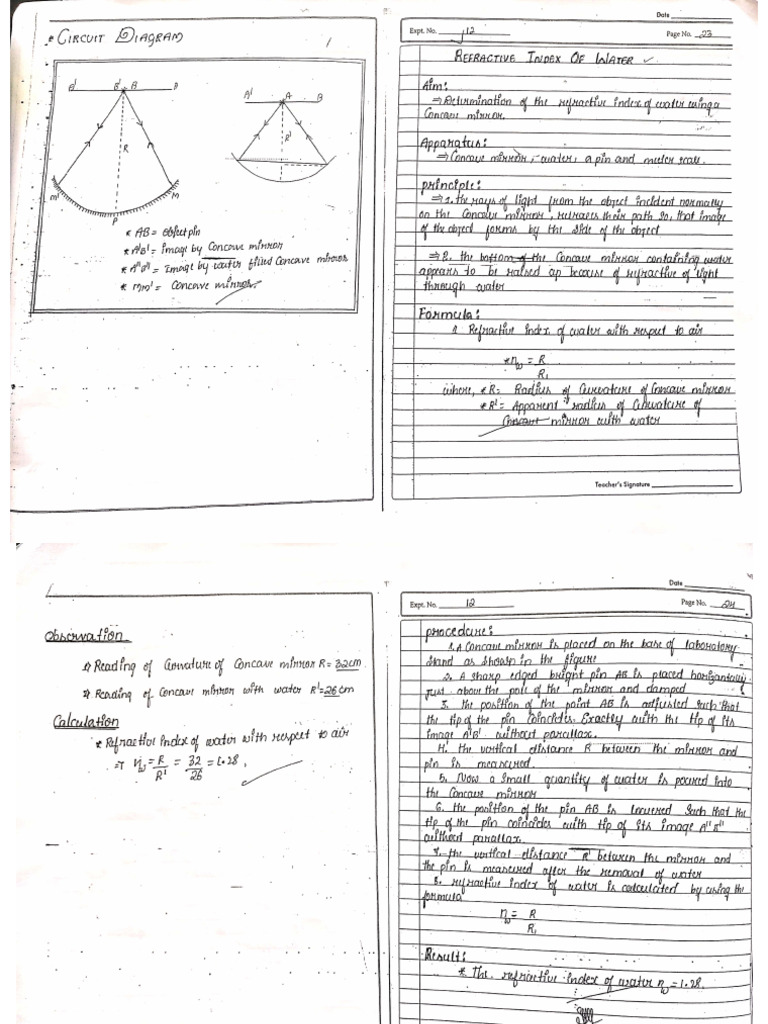 * CIRCUIT DIAGRAM
A' B' B A
R
M' M
P
A' A B
R'
* AB = object pin
* A'B' = Image by Concave mirror
* A"B" = Image by water filled Concave mirror
* MM' = Concave mirror
Date
Expt. No. 12
Page No. 23
REFRACTIVE INDEX OF WATER
Aim:
⇒ Determination of the refractive index of water using a
Concave mirror.
Apparatus:
⇒ Concave mirror, water, a pin and meter scale.
principle:
⇒ 1. the rays of light from the object incident normally
on the Concave mirror, retraces their path so, that image
of the object forms by the side of the object
⇒ 2. the bottom of the Concave mirror containing water
appears to be raised up because of refractive of light
through water
Formula:
Refractive index of water with respect to air
* nw = R
R1
where, * R = Radius of Curvature of Concave mirror
* R' = Apparent radius of Curvature of
Concave mirror with water
Teacher's Signature
Observation
* Reading of Curvature of Concave mirror R = 32cm
* Reading of Concave mirror with water R' = 26cm
Calculation
* Refractive index of water with respect to air
⇒ nw = R/R' = 32/26 = 1.28,
Date
Expt. No. 12
Page No. 24
procedure:
1. A Concave mirror is placed on the base of laboratory
stand as shown in the figure
2. A sharp edged bright pin AB is placed horizontally
just about the pole of the mirror and damped
3. the position of the point AB is adjusted such that
the tip of the pin coincides Exactly with the tip of its
image A'B' without parallax.
4. the vertical distance R between the mirror and
pin is measured.
5. Now a small quantity of water is poured into
the Concave mirror
6. the position of the pin AB is lowered such that the
tip of the pin coincides with tip of its image A"B"
without parallax.
7. the vertical distance R' between the mirror and
the pin is measured after the removal of water
8. refractive index of water is calculated by using the
formula
nw = R
R1
Result:
* The refractive index of water nw = 1.28.